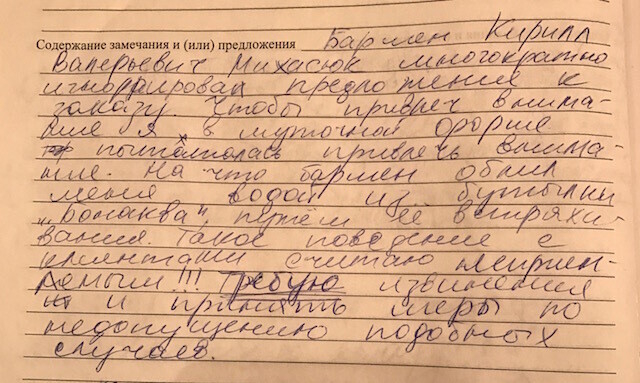 Содержание замечания и (или) предложения Бармен Кирилл
Валерьевич Михасюк многократно
игнорировал предложения к
заказу. Чтобы привлеч внима-
ние я в шуточной форме
пыталась привлечь внима-
ние. На что бармен облил
меня водой из бутылки
"Бонаква", путём её встряхи-
вания. Такое поведение с
клиентами считаю неприем-
лемым!!! Требую извинения
и принять меры по
недопущению подобных
случаев.